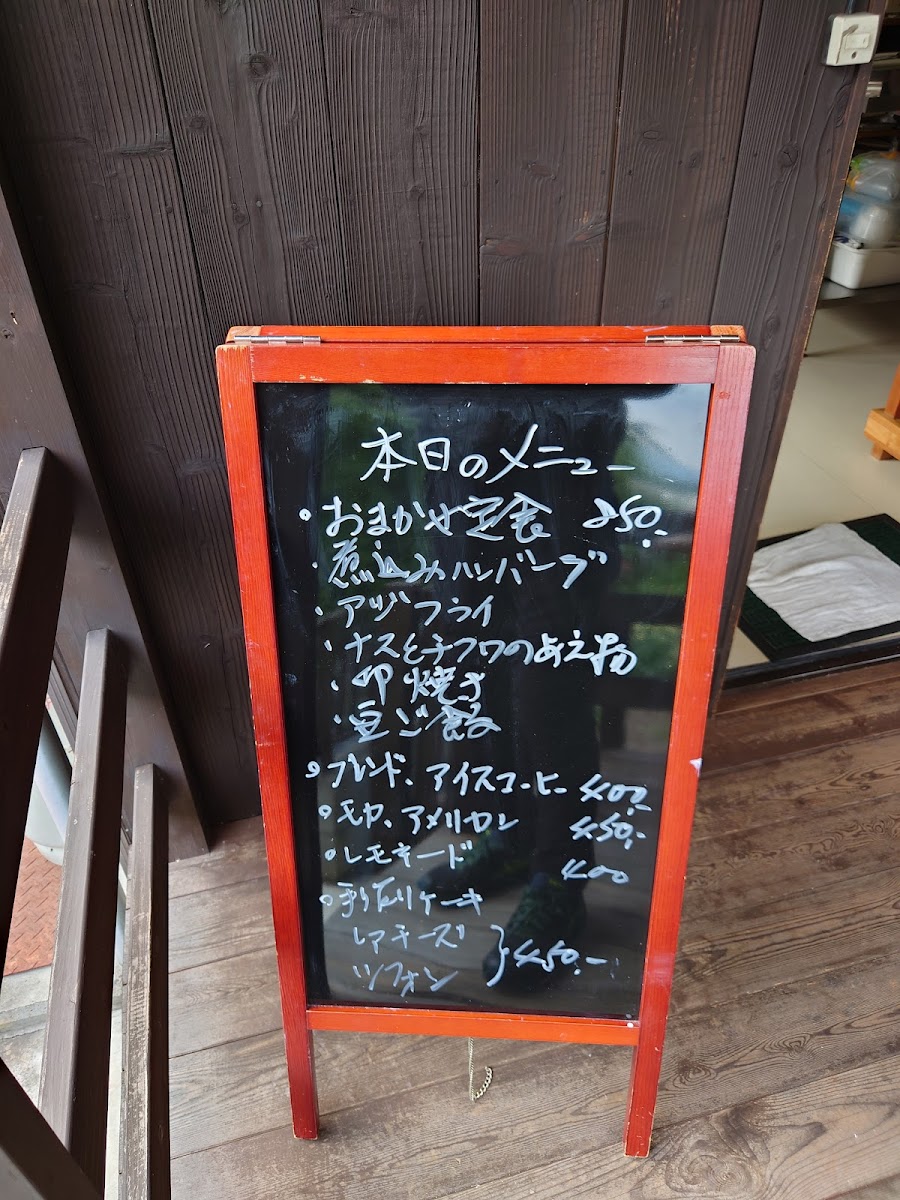 本日のメニュー
・おまかせ定食 850.-
・煮込みハンバーグ
・アジフライ
・ナスとチクワのあえ物
・卵焼き
・豆ご飯
○ブレンド、アイスコーヒー 400.-
○モカ、アメリカン 450.-
○レモネード 400
○手作りケーキ
レアチーズ
シフォン } 450.-